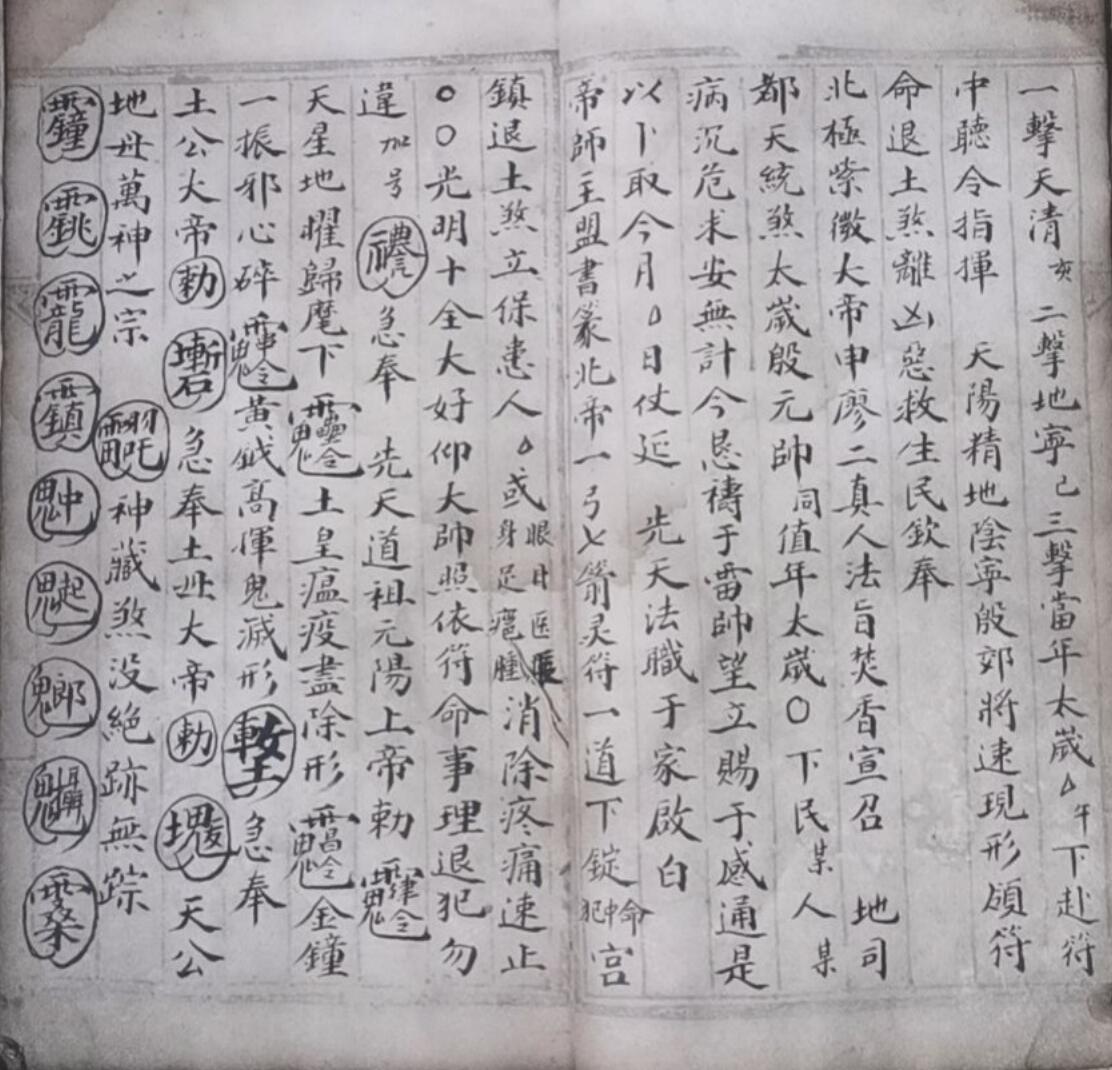 一擊天清亥二擊地寧己三擊當年太歲△午下赴符
中聽令指揮 天陽精地陰寧殷郊將速現形領符
命退土煞離凶惡救生民欽奉
北極紫微大帝申廖二真人法旨焚香宣召 地司
都天統煞太歲殷元帥同值年太歲〇下民某人某
病沉危求安無計今恳禱于雷帥望立賜于感通是
以卜取今月△日仗延 先天法職于家啟白
帝師主盟書篆北帝一弓七箭灵符一道下錠犯冲命宫
鎮退土煞立保患人△或身足瘡腫眼目医消除疼痛速止
〇〇光明十全大好仰大帥照依符命事理退犯勿
違加号急奉 先天道祖元陽上帝勅
天星地曜歸麾下土皇瘟疫盡除形金鐘
一振邪心碎黃鉞高揮鬼滅形急奉
土公大帝勅急奉土母大帝勅天公
地母萬神之宗 神藏煞没絕跡無踪